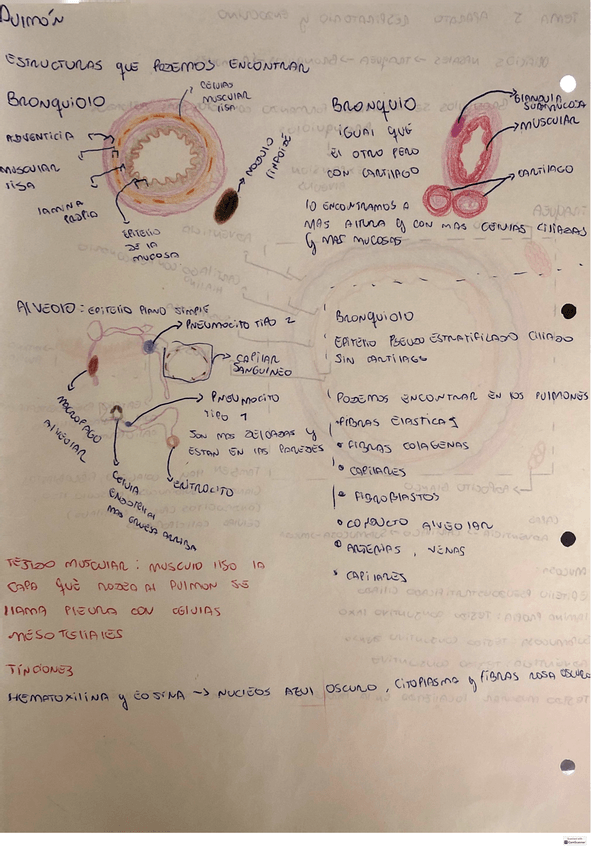 PULMÓN
ESTRUCTURAS QUE PODEMOS ENCONTRAR
BRONQUIOLO
CÉLULAS
MUSCULAR
LISA
ADVENTICIA
MUSCULAR
LISA
LAMINA
PROPIA
EPITELIO
DE LA
MUCOSA
NODULO
LINFOIDE
BRONQUIO
IGUAL QUE
EL OTRO PERO
CON CARTILAGO
LO ENCONTRAMOS A
MAS ALTURA Y CON MAS CELULAS CILIADAS
Y MAS MUCOSAS
GLANDULA
SUBMUCOSA
MUSCULAR
CARTILAGO
ALVEOLO: EPITELIO PLANO SIMPLE
PNEUMOCITO TIPO 2
CAPILAR
SANGUINEO
PNEUMOCITO
TIPO 1
SON MAS DELGADAS Y
ESTAN EN LAS PAREDES
MACROFAGO
ALVEOLAR
CELULA
ENDOTELIAL
MAS GRUESA ARRIBA
ERITROCITO
BRONQUIOLO
EPITELIO PSEUDO ESTRATIFICADO CILIADO
SIN CARTILAGO
PODEMOS ENCONTRAR EN LOS PULMONES
FIBRAS ELASTICAS
• FIBRAS COLAGENAS
• CAPILARES
• FIBROBLASTOS
• CONDUCTO ALVEOLAR
• ARTERIAS, VENAS
• CAPILARES
TEJIDO MUSCULAR: MUSCULO LISO LA
CAPA QUE RODEA AL PULMON SE
LLAMA PLEURA CON CELULAS
MESOTELIALES
TINCIONES
HEMATOXILINA Y EOSINA → NUCLEOS AZUL OSCURO, CITOPLASMA Y FIBRAS ROSA OSCURO